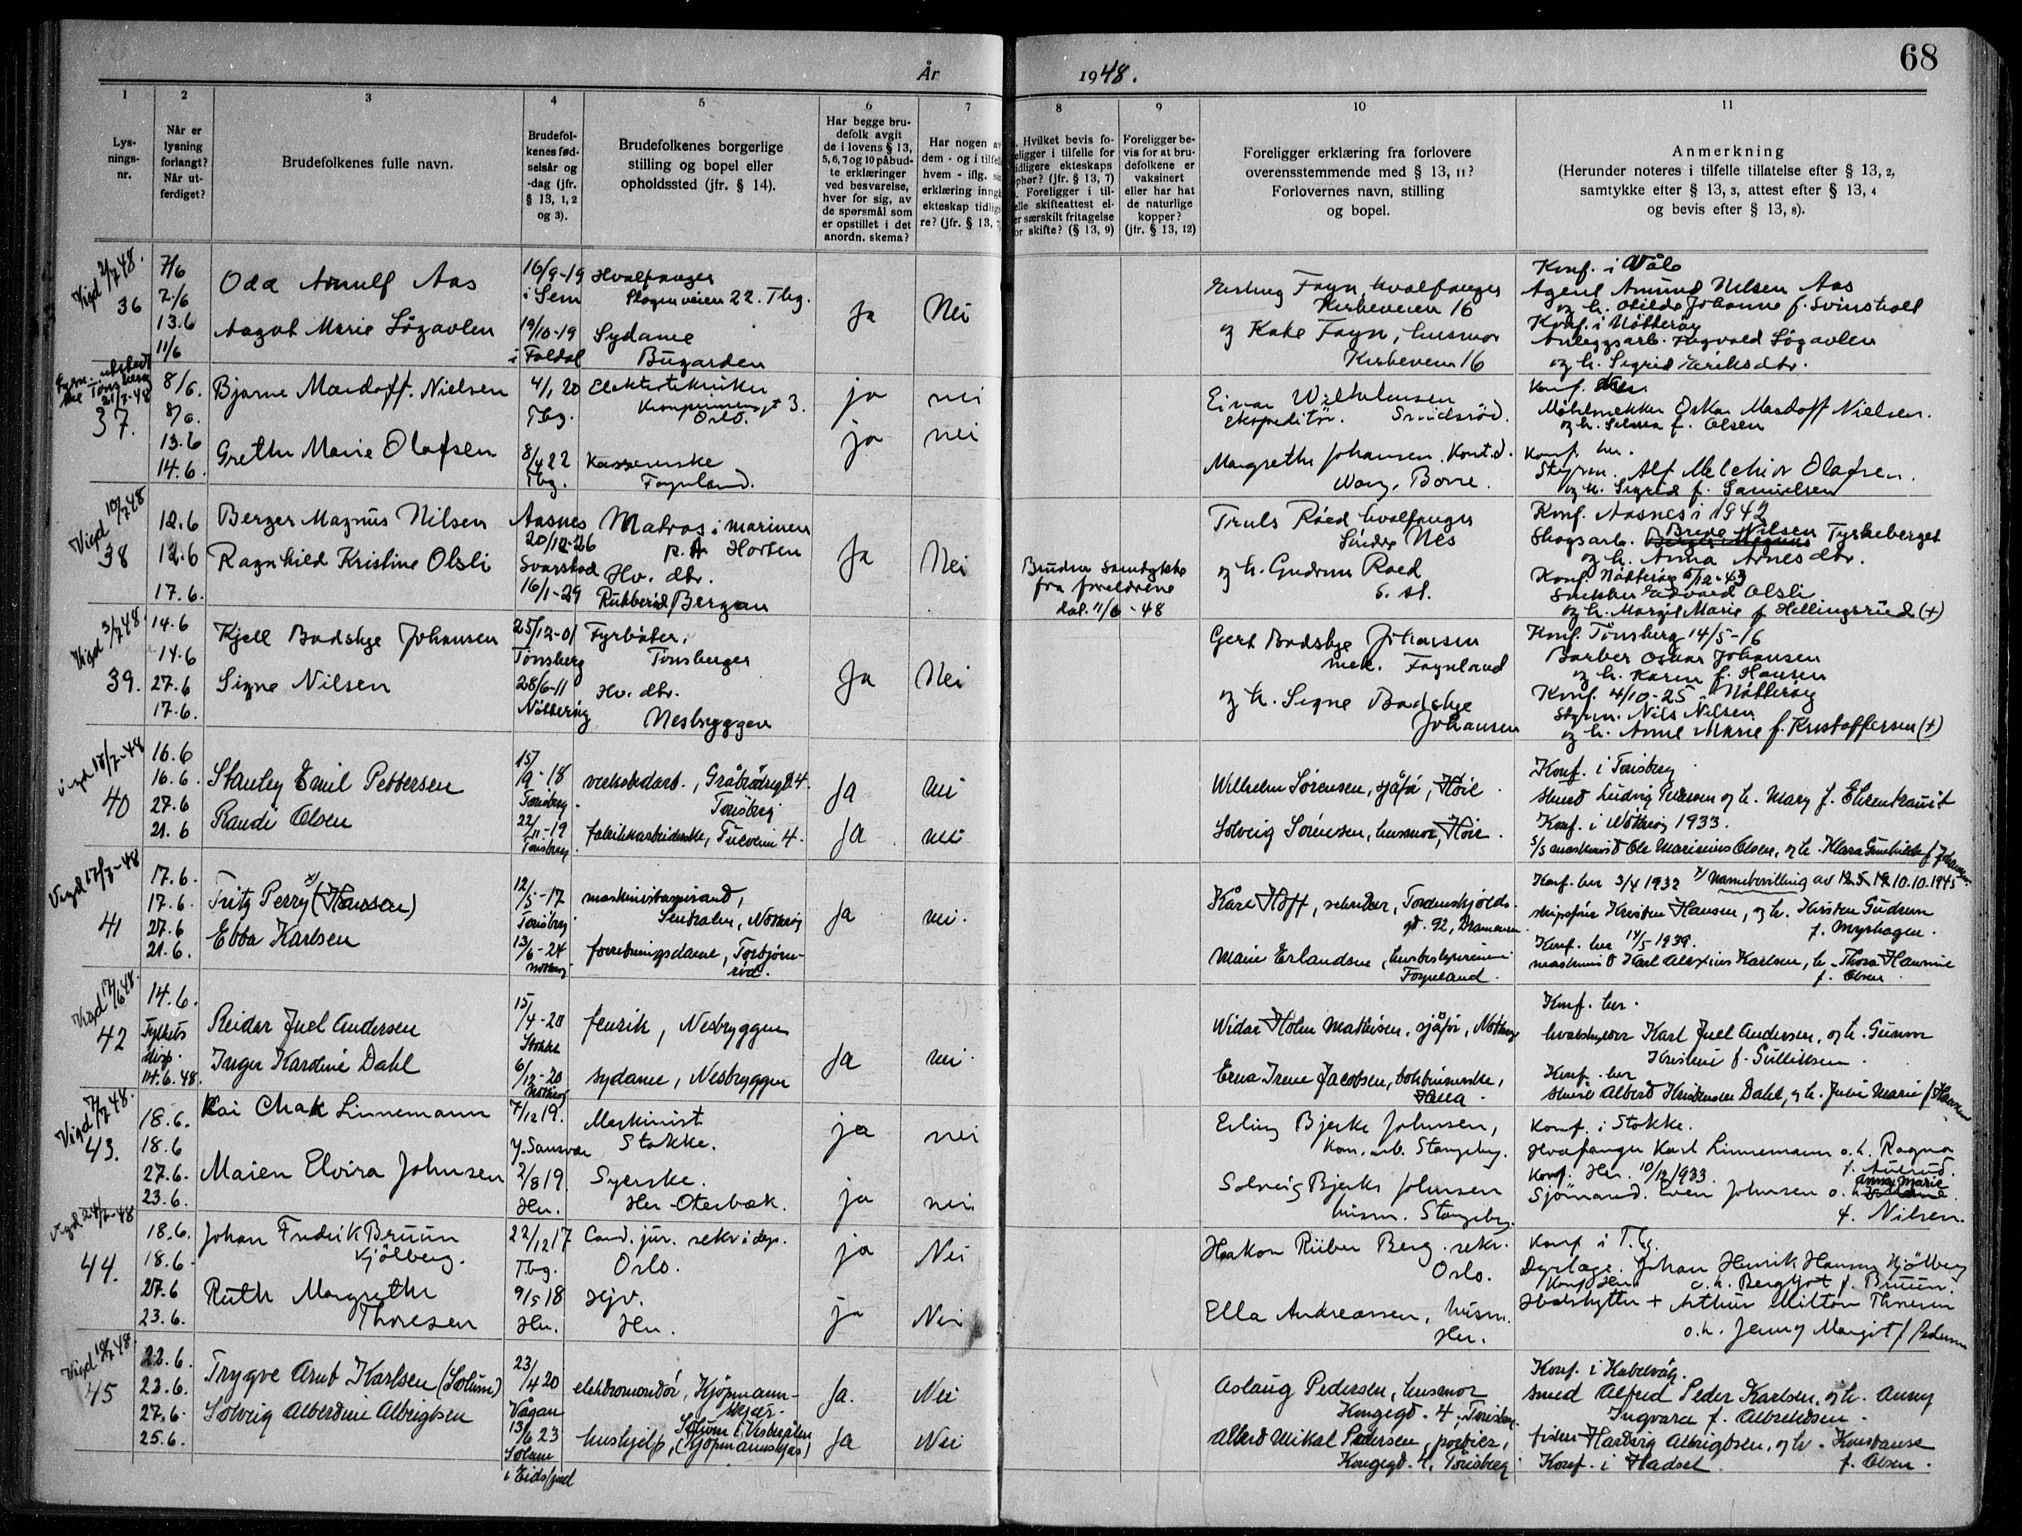 68
År 1948.
1 2 3 4 5 6 7 8 9 10 11
Lys-
nings-
nr.
Når er
lysning
forlangt?
Når ut-
ferdiget?
Brudefolkenes fulle navn.
Brudefol-
kenes fød-
selsår og
-dag (jfr.
§ 13, 1, 2
og 3).
Brudefolkenes borgerlige
stilling og bopel eller
opholdssted (jfr. § 14).
Har begge bru-
defolk avgit
de i lovens § 13,
5, 6, 7 og 10 påbud-
te erklæringer
ved besvarelse,
hver for sig, av
de spørsmål som
er opstillet i det
anordn. skema?
Har nogen av
dem - og i tilfelle
hvem - iflg. sin
erklæring inngå
ekteskap tidlig
re? (jfr. § 13,
Hvilket bevis fo-
religger i tilfelle for
tidligere ekteskaps
ophør? (jfr. § 13, 7)
Foreligger i til-
elle skifteattest el-
er særskilt fritagelse
or skifte? (§ 13, 9)
Foreligger be-
vis for at bru-
defolkene er
vaksinert
eller har hat
de naturlige
kopper?
(jfr. § 13, 12)
Foreligger erklæring fra forlovere
overensstemmende med § 13, 11?
Forlovernes navn, stilling
og bopel.
Anmerkning
(Herunder noteres i tilfelle tillatelse efter § 13, 2,
samtykke efter § 13, 3, attest efter § 13, 4
og bevis efter § 13, 8).
Vigd 2/7 48.
36
7/6
7/6
13.6
11/6
Odd Arnulf Aas
Aagot Marie Løgavlen
16/9-19
i Sem
19/10-19
i Foldal
Hvalfanger
Skogenveien 22. Tbg.
Sydame
Bugarden
Ja
Nei
Erling Fayn, hvalfanger
Kirkeveien 16
og Kate Fayn, husmor
Kirkeveien 16
Konf. i Våle
Agent Amund Nilsen Aas
og h. Otilde Johanne f. Svinstholt
Konf. i Nøtterøy
Anleggsarb. Ingvald Løgavlen
og h. Sigrid Eriksdtr.
37.
8/6.
8/6.
13.6
14.6.
Bjarne Mardoff. Nielsen
Grethe Marie Olafsen
4/1 20
Tbg.
8/4 22
Tbg.
Elektrotekniker
Oslo.
Kassererske
Føynland.
ja
nei
ja
nei
Einar Wilhelmsen
ekspeditør. Smidsrød.
Margrethe Johansen. Kont.d.
Borre.
Konf. Her.
Møbelsnekker Oskar Mardoff Nielsen.
og h. Selma f. Olsen
Konf. her.
Styrm. Alf Melchior Olafsen.
og h. Sigrid f. Samuelsen
Vigd 10/7 48
38
12.6
12.6
17.6.
Berger Magnus Nilsen
Ragnhild Kristine Olsli
Aasnes
20/12-26
Svarstad
16/1-29
Matros i marinen
p.t. Horten
Hv. dtr.
Rukkerød Bergan
Ja
Nei
Bruden samtykke
fra foreldrene
dat. 11/6-48
Truls Røed hvalfanger
Søndre Nes
og h. Gudrun Røed
s. st.
Konf. Aasnes i 1942
Skogsarb. Brede Nilsen Tyskeberget
og h. Anna Arnesdtr.
Konf. Nøtterøy 5/12-43
Snekker Edvard Olsli
og h. Margit Marie f. Hellingsrud (+)
Vigd 3/7 48.
39.
14.6
14.6
27.6
17.6.
Kjell Bodskje Johansen
Signe Nilsen
25/12-01
Tønsberg
28/6-11
Nøtterøy
Fyrbøter,
Tønsberger
Hv. dtr.
Nesbryggen
Ja
Nei
Gert Bodskje Johansen
mek. Føynland
og h. Signe Bodskje
Johansen
Konf. Tønsberg 14/5-16
Barber Oskar Johansen
og h. Karen f. Hansen
Konf. 4/10-25 i Nøtterøy
Styrm. Nils Nilsen
og h. Anne Marie f. Kristoffersen (+)
Vigd 17/7-48
40
16.6
16.6.
27.6
21.6
Stanley Emil Pettersen
Randi Olsen
15/
9-18
Tønsberg.
22/
11-19
Tønsberg.
verkstedarb., Gråbrødregt 4.
Tønsberg
fabrikkarbeiderske, Tueveien 4.
Ja
nei
Ja
nei
Wilhelm Sørensen, sjåfør, Høie.
Solveig Sørensen, husmor, Høie.
Konf. i Tønsberg.
Smed Ludvig Pettersen og h. Mary f. Ehrentraut
Konf. i Nøtterøy 1933.
s/s maskinist Ole Marinius Olsen, og h. Klara Gunhilde f. Johansen.
Vigd 17/7-48
41
17.6.
17.6.
27.6
21.6.
Fritz Perry x) (Hansen)
Ebba Karlsen
12/
5-17
Tønsberg
13/
6-24
Nøtterøy
maskinistaspirant,
Sentralen, Nøtterøy
forretningsdame, Torbjørns-
rød.
Ja
nei.
Kåre Hoff, schrøder, Tordenskjolds-
gt. 92, Drammen.
Marie Erlandsen, husbestyrerinne
Føynland
Konf. her 3/4 1932 x) Navnebevilling av 10.10.1945
skipsfører Kristen Hansen, og h. Kirsten Gudrun
f. Myrhagen.
Konf. her 14/5 1939.
maskinist Karl Alexius Karlsen, h. Thora Hannine
f. Olsen.
Vigd 48.
42
14.6.
Fylkets
disp.
14.6.48.
Reidar Juel Andersen
Inger Karoline Dahl
15/
4-20
Stokke
6/
12-20
Nøtterøy
fenrik, Nesbryggen
sydame, Nesbryggen
Ja
nei.
Widar Holm Mathisen, sjåfør, Nøtterøy
Erna Irene Jacobsen, bokbinderske,
Konf. her.
hvalskytter Karl Juel Andersen, og h. Gunvor
Kristine f. Gulliksen.
Konf. her
Albert Kristensen Dahl, og h. Julie Marie f. Hansen
Vigd 7/7 48.
43.
18.6.
18.6
27.6.
23.6.
Kai Chak Linnemann
Maien Elvira Johnsen
7/12 19.
7/8 19.
Her.
Maskinist
Stokke.
Syerske.
Her-Oterbæk.
ja
nei
ja
nei
Erling Bjerke Johnsen,
Kon. arb. Stangeby.
Solveig Bjerke Johnsen
husm. Stangeby.
Konf. i Stokke.
Hvalfanger Karl Linnemann o.h. Ragna
f. Aulerud.
Konf. Her. 10/12 1933.
Anna Marie
Sjømand. Even Johnsen o.h.
f. Nilsen.
Vigd 24/7-48
44.
18.6.
18.6.
27.6
23.6.
Johan Fredrik Bruun
Kjølberg.
Ruth Margrethe
Thoresen
22/12 17
Tbg.
9/5 18
Her.
Cand. jur. sekr. i dep.
Oslo.
Hjv.
Her.
ja
Nei
ja
Nei
Haakon Riiber Berg. sekr.
Oslo.
Ella Andreassen, husm.
Her.
Konf i T.bg.
Dyrlæge. Johan Henrik Hansen Kjølberg
Konf Her o.h. Bergljot f. Bruun.
Hvalskytter + Arthur Milton Thoresen
o.h. Jenny Margit f. Pedersen
Vigd 10/7 48
45
22.6.
22.6.
27.6.
25.6.
Trygve Arnt Karlsen (Solum)
Solveig Alberdine Albrigtsen
23/
4 20
Vågan
13/
6 23
Solum
i Eidsfjord
elektromontør, Kjøpmann-
skjær.
Solum i Vesterålen
hushjelp, (Kjøpmannskjær)
Ja.
Nei
Ja
Nei
Aslaug Pedersen, husmor
Kongegt. 4, Tønsberg.
Albert Mikal Pedersen, portier,
Kongegt. 4, Tønsberg.
Konf. i Kabelvåg.
smed Alfred Peder Karlsen, og h. Anny
Ingvara f. Albrektsen.
fisker Hartvig Albrigtsen, og h. Konstanse
Konf. i Hadsel. f. Olsen.